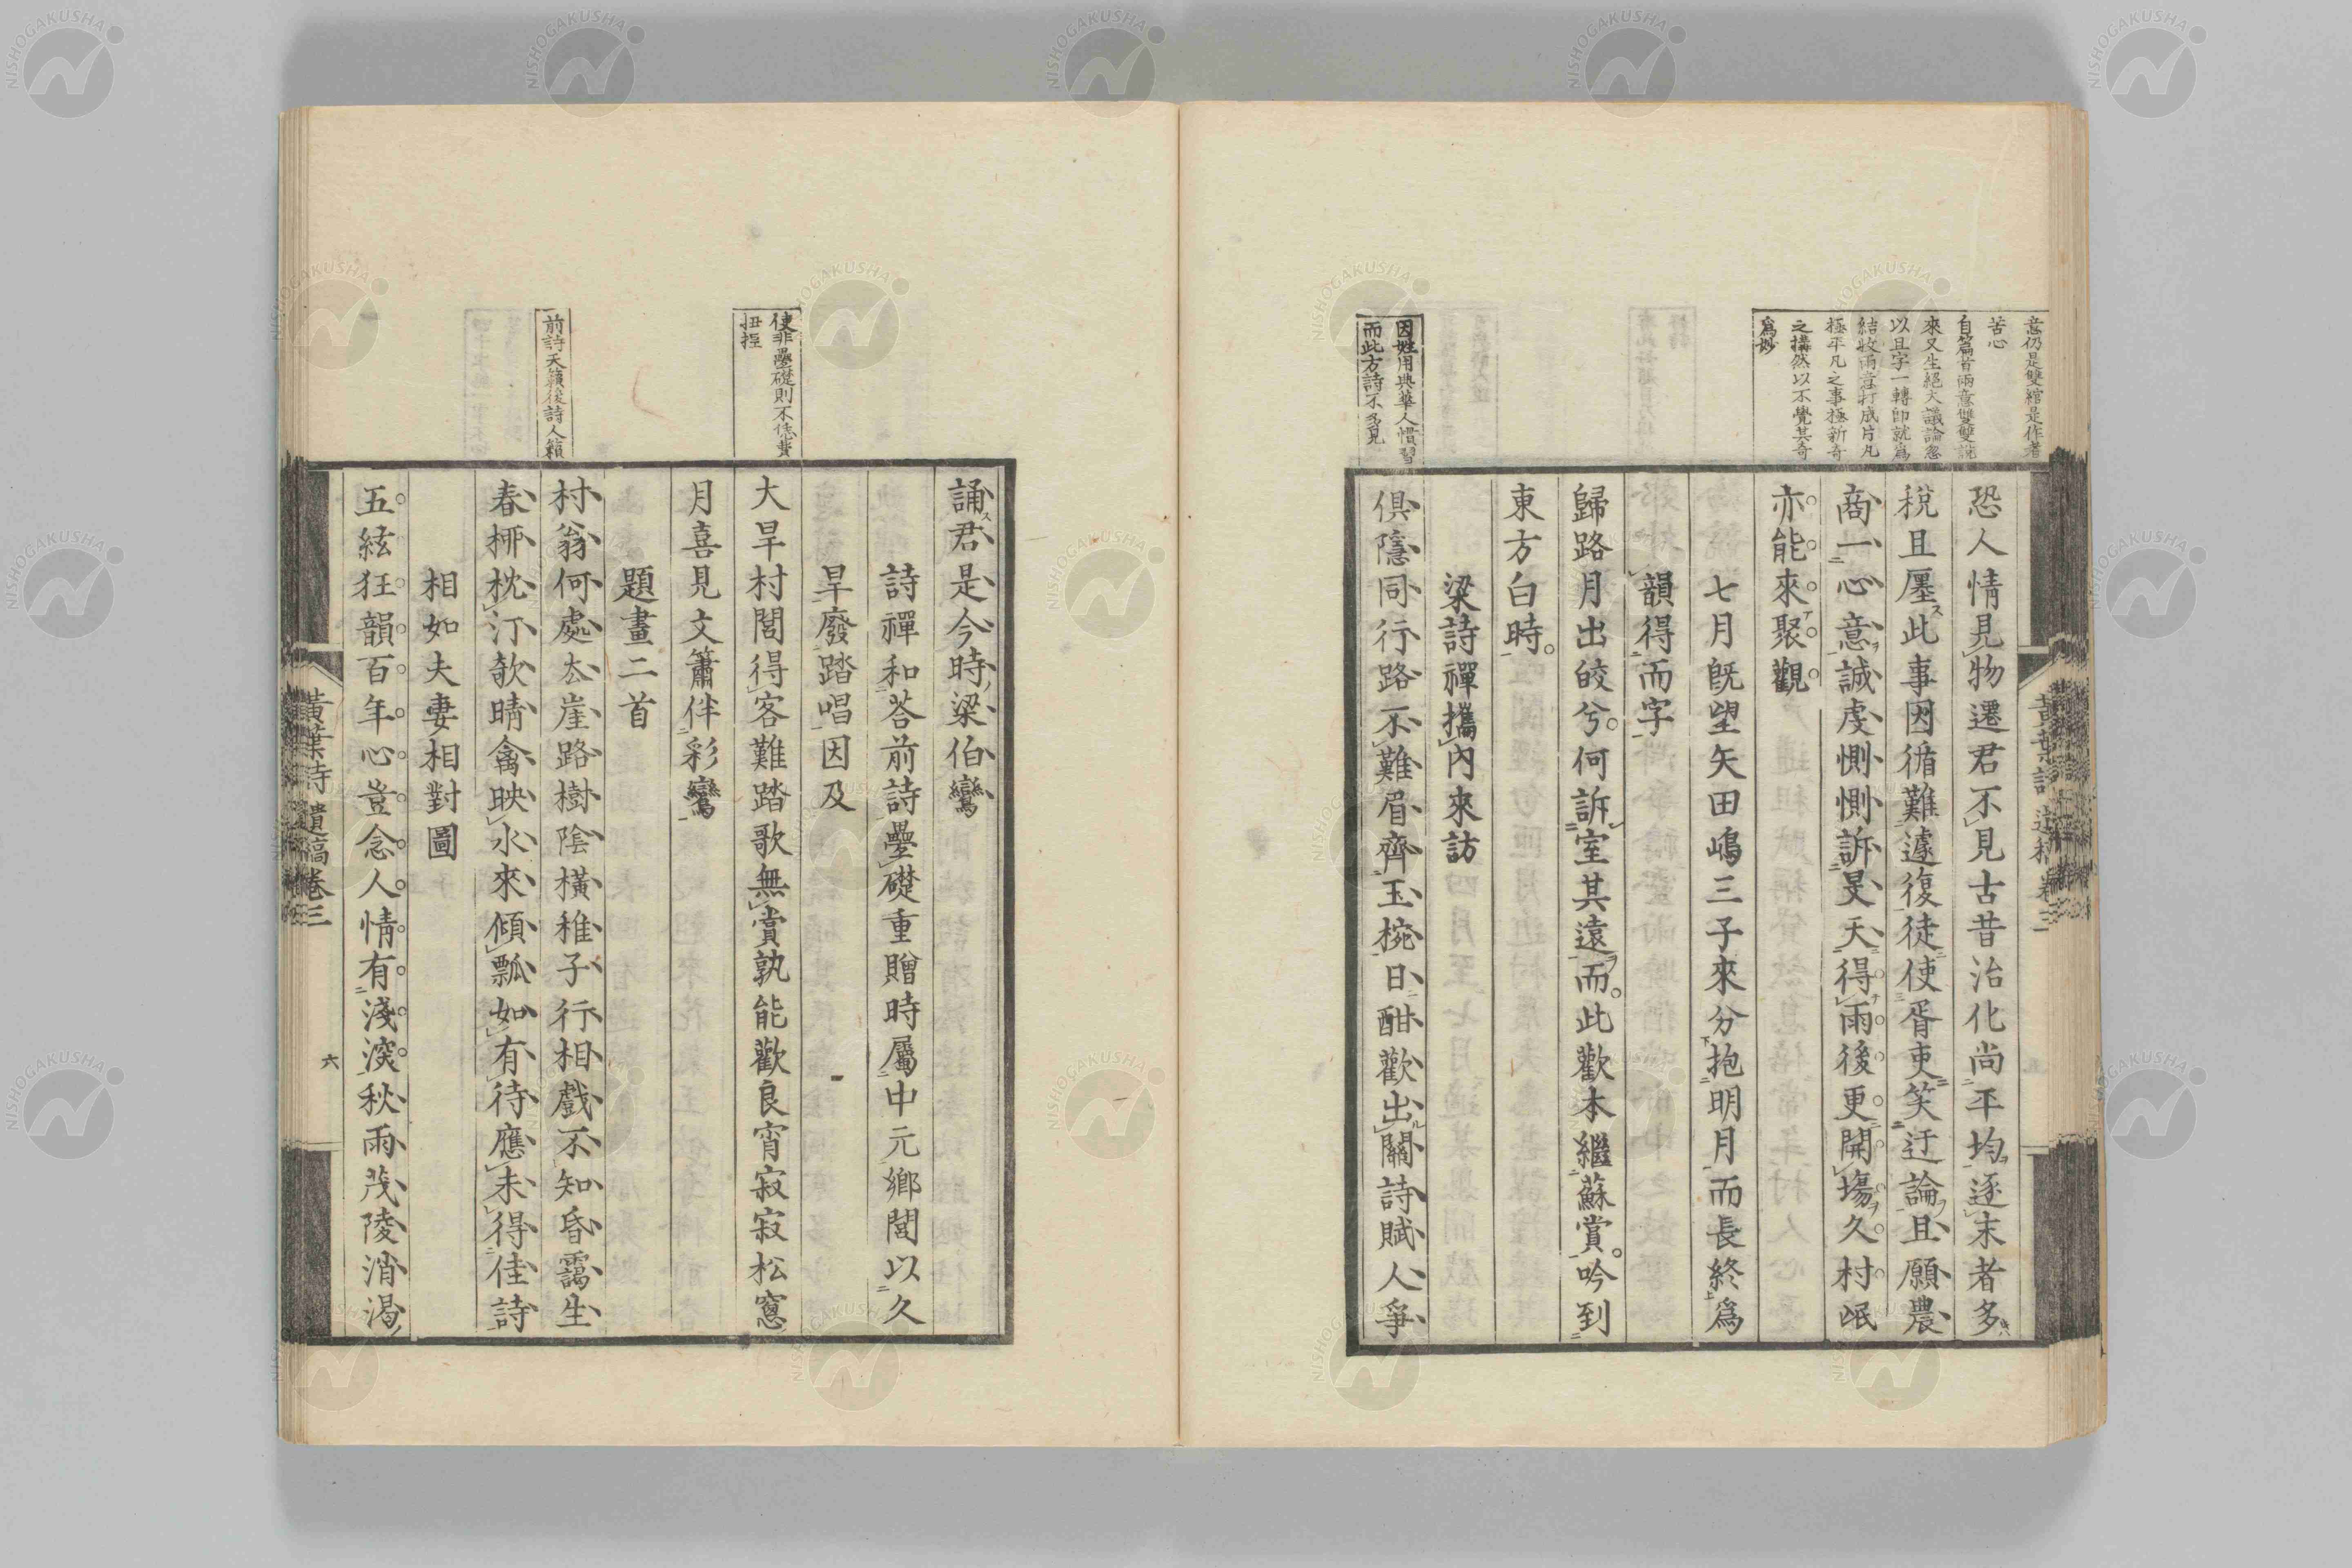 意仍是雙綰是作者
苦心
自篇首兩意雙雙說
來又生絕大議論忽
以且字一轉卽就爲
結收兩意打成片凡
極平凡之事極新奇
之搆然以不覺其奇
爲妙
恐人情見物遷君不見古昔治化尚平均逐末者多
稅且廛此事因循難遽復徒使胥吏笑迂論且願農
商一心意誠虔惻惻訴旻天得雨後更開場久村氓
亦能來聚觀
七月旣望矢田嶋三子來分抱明月而長終爲
韻得而字
歸路月出皎兮何訴室其遠而此歡本繼蘇賞吟到
東方白時
因姓用典華人慣習
而此方詩不多見
梁詩禪攜內來訪
俱隱同行路不難眉齊玉椀日酣歡出關詩賦人爭
誦君是今時梁伯鸞
詩禪和荅前詩疊礎重贈時屬中元鄉閭以久
旱廢踏唱因及
使非疊礎則不恁費
扭捏
大旱村閭得客難踏歌無賞孰能歡良宵寂寂松窻
月喜見文簫伴彩鸞
題畫二首
前詩天籟後詩人籟
村翁何處厺崖路樹陰橫稚子行相戲不知昏靄生
春桺枕汀欹晴禽映水來傾瓢如有待應未得佳詩
相如夫妻相對圖
五絃狂韻百年心豈念人情有淺深秋雨茂陵消渴
黃葉詩遺稿卷三
六